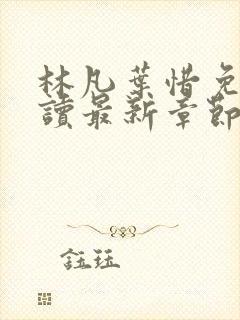 林凡葉惜免
讀最新章節
鈺珏